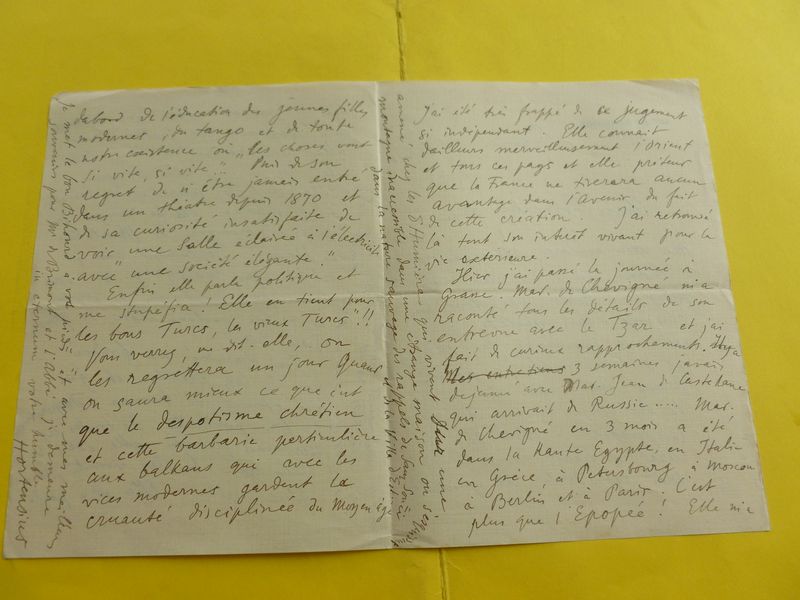 d'abord de l'éducation des jeunes filles
modernes, du tango et de toute
notre coexistence où "les choses vont
si vite, si vite"... Puis de son
regret de n'être jamais entrée
dans un théatre depuis 1870 et
de sa curiosité insatisfaite de
voir "une salle éclairée à l'électricité
avec une société élégante."
Enfin elle parle politique et
me stupéfia! Elle en tient pour
"les bons Turcs, les vieux Turcs"!!
Vous verrez, me dit-elle, on
les regrettera un jour quand
on saura mieux ce que c'est
que le despotisme chrétien
et cette barbarie particulière
aux balkans qui avec les
vices modernes gardent la
cruauté disciplinée du Moyen age
J'ai été très frappé de ce jugement
si indépendant. Elle connait
d'ailleurs merveilleusement l'Orient
et tous ces pays et elle prétend
que la France ne tirera aucun
avantage dans l'avenir du fait
de cette création. J'ai retrouvé
là tout son intérêt vivant pour la
vie extérieure.
Hier j'ai passé la journée à
Grasse. Mad. de Chevigné m'a
raconté tous les détails de son
entrevue avec le Tzar et j'ai
fait de curieux rapprochements. Il y a
3 semaines j'avais
déjeuné avec Mad. Jean de Castelane
qui arrivait de Russie..... Mad.
de Chevigné en 3 mois a été
dans la Haute Egypte, en Italie
en Grèce, à Petersbourg à Moscou
à Berlin et à Paris. C'est
plus que l'Epopée! Elle m'a
amené chez les d'Humières qui vivent dans une
montagne inaccessible dans une étrange maison où
dans la nature sauvage des rappels de Sans Souci
et de la Villa d'Este
Je met le bon Bihourd à vos pieds et avec mes meilleurs
souvenirs pour Mr de Brimont et l'Abbé je demeure
in eternum votre humble
Hortensius